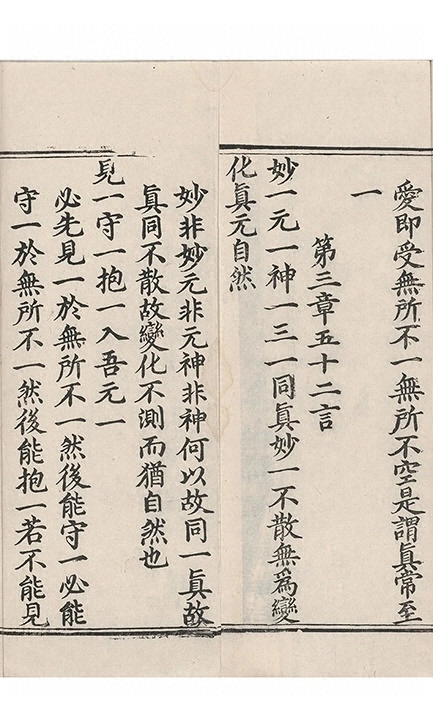 愛即受無所不一無所不空是謂眞常至
一
第三章五十二言
妙一元一神一三一同眞妙一不散無爲變
化眞元自然
妙非妙元非元神非神何以故同一眞故
眞同不散故變化不測而猶自然也
見一守一抱一入吾元一
必先見一於無所不一然後能守一必能
守一於無所不一然後能抱一若不能見